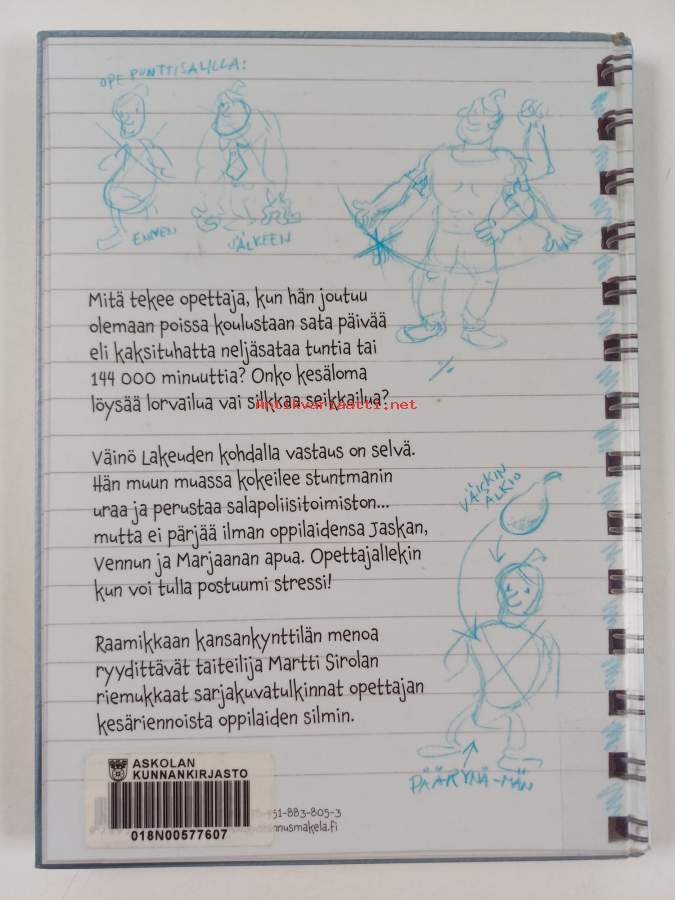 OPE PUNTTISALILLA:
ENNEN
JÄLKEEN
Mitä tekee opettaja, kun hän joutuu
olemaan poissa koulustaan sata päivää
eli kaksituhatta neljäsataa tuntia tai
144 000 minuuttia? Onko kesäloma
löysää lorvailua vai silkkaa seikkailua?
Antikvariaatti.net
Väinö Lakeuden kohdalla vastaus on selvä.
Hän muun muassa kokeilee stuntmanin
uraa ja perustaa salapoliisitoimiston...
mutta ei pärjää ilman oppilaidensa Jaskan,
Vennun ja Marjaanan apua. Opettajallekin
kun voi tulla postuumi stressi!
VÄISKIN
ALKIO
Raamikkaan kansankynttilän menoa
ryydittävät taiteilija Martti Sirolan
riemukkaat sarjakuvatulkinnat opettajan
kesäriennoista oppilaiden silmin.
PÄÄRYNÄ-MÄN
ASKOLAN
KUNNANKIRJASTO
018N00577607
51-883-805-3
nnusmakela.fi